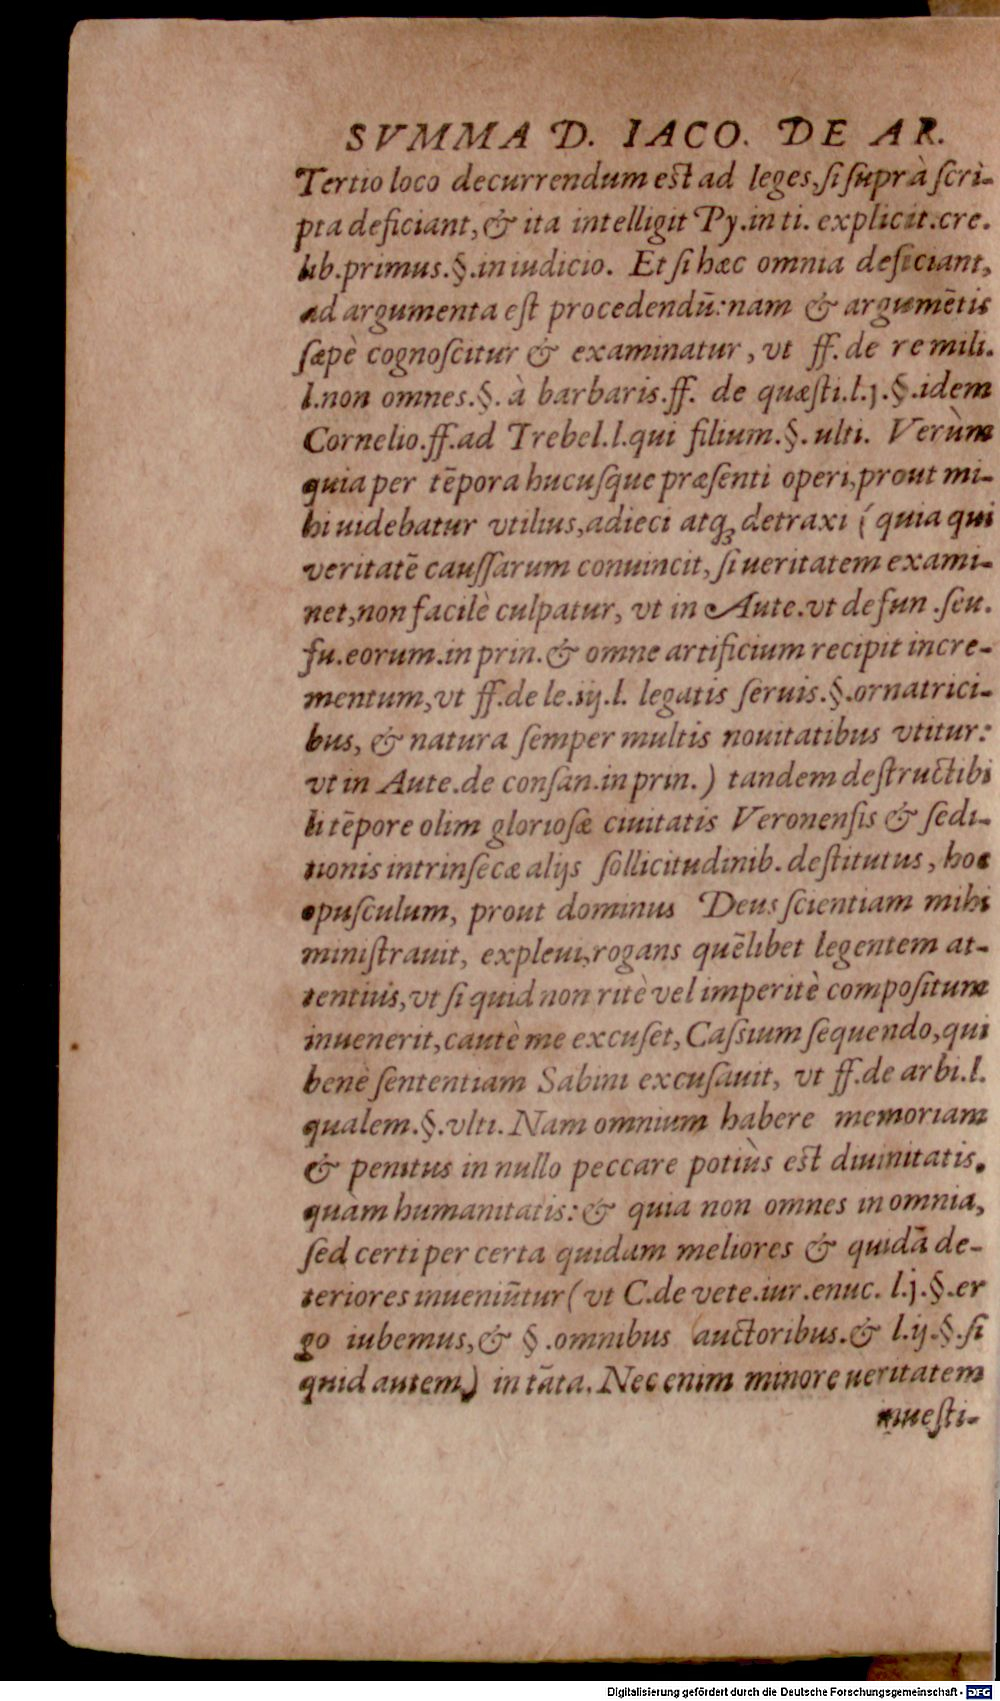 SVMMA D. IACO. DE AR.
Tertio loco decurrendum est ad leges, si suprà scri-
pta deficiant, & ita intelligit Py. in ti. explicit. cre.
lib. primus. §. in iudicio. Et si hæc omnia deficiant,
ad argumenta est procedendū: nam & argumētis
sæpè cognoscitur & examinatur, vt ff. de re mili.
l. non omnes. §. à barbaris. ff. de quæsti. l. j. §. idem
Cornelio. ff. ad Trebel. l. qui filium. §. ulti. Verùm
quia per tēpora hucusque præsenti operi, prout mi-
hi uidebatur vtilius, adieci atq; detraxi (quia qui
veritatē caussarum conuincit, si ueritatem exami-
net, non facilè culpatur, vt in Aute. vt defun. seu.
fu. eorum. in prin. & omne artificium recipit incre-
mentum, vt ff. de le. iij. l. legatis seruis. §. ornatrici-
bus, & natura semper multis nouitatibus vtitur:
vt in Aute. de consan. in prin.) tandem destructibi
li tēpore olim gloriosæ ciuitatis Veronensis & sedi-
tionis intrinsecæ alijs sollicitudinib. destitutus, hoc
opusculum, prout dominus Deus scientiam mihi
ministrauit, expleui, rogans quēlibet legentem at-
tentius, vt si quid non ritè vel imperitè compositum
inuenerit, cautè me excuset, Cassium sequendo, qui
benè sententiam Sabini excusauit, vt ff. de arbi. l.
qualem. §. vlti. Nam omnium habere memoriam
& penitus in nullo peccare potiùs est diuinitatis.
quàm humanitatis: & quia non omnes in omnia,
sed certi per certa quidam meliores & quidā de-
teriores inueniūtur (vt C. de vete. iur. enuc. l. j. §. er
go iubemus, & §. omnibus auctoribus. & l. ij. §. si
quid autem) in tāta. Nec enim minore ueritatem
inuesti-
Digitalisierung gefördert durch die Deutsche Forschungsgemeinschaft - DFG